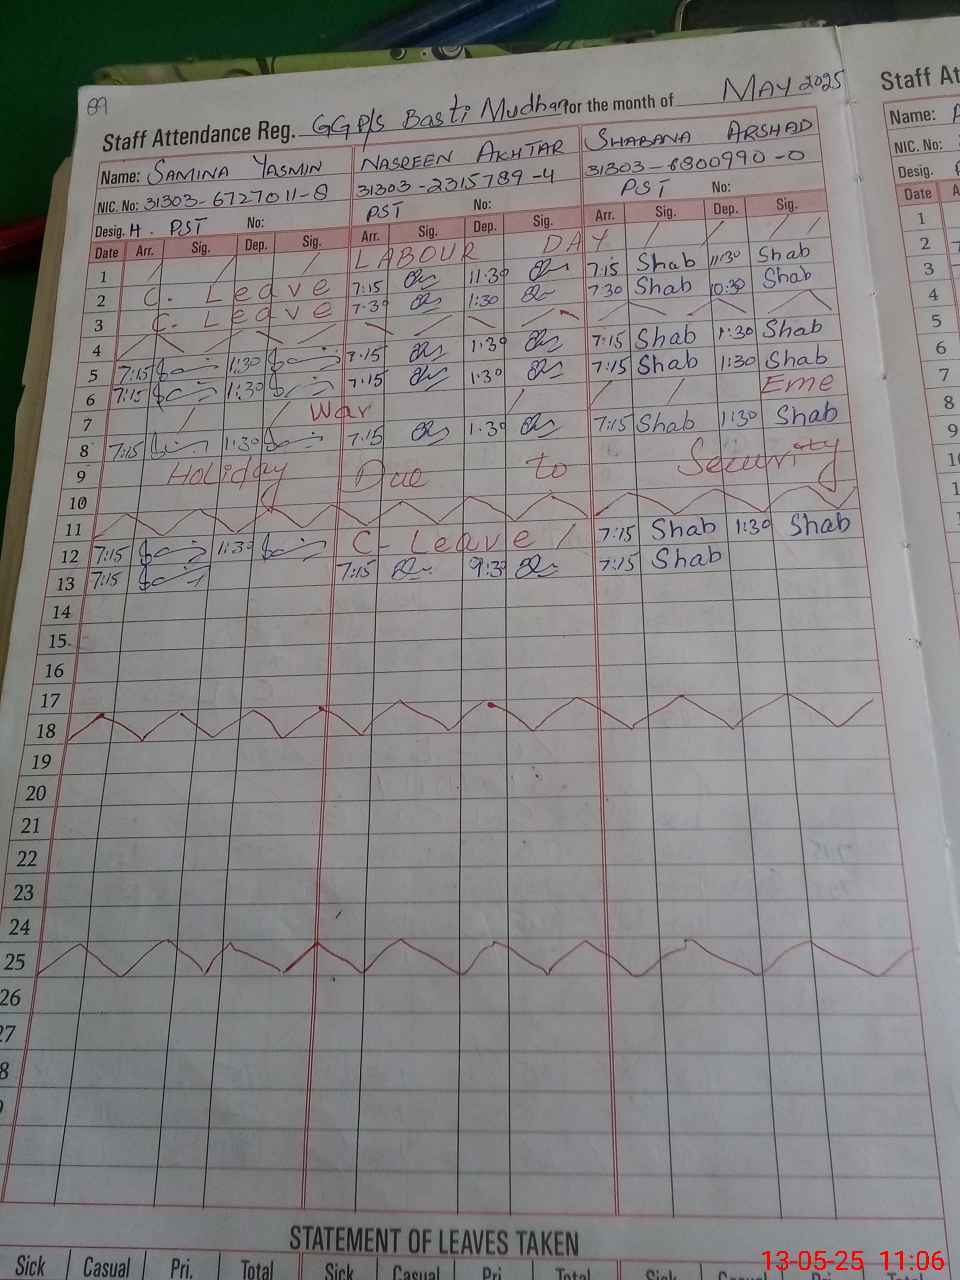 89
Staff Attendance Reg. GGP/S Basti Mudhan for the month of MAY 2025
Name: SAMINA YASMIN NASREEN AKHTAR SHABANA ARSHAD
NIC. No: 31303-6727011-8 31303-2315789-4 31303-6800990-0
Desig. H. PST No: PST No: PST No:
Date Arr. Sig. Dep. Sig. Arr. Sig. Dep. Sig. Arr. Sig. Dep. Sig.
1 LABOUR DAY
2 C. Leave 7:15 11:30 7:15 Shab 11:30 Shab
3 C. Leave 7:30 1:30 7:30 Shab 10:30 Shab
4
5 7:15 1:30 7:15 1:30 7:15 Shab 1:30 Shab
6 7:15 1:30 7:15 1:30 7:15 Shab 1:30 Shab
7 War Eme
8 7:15 1:30 7:15 1:30 7:15 Shab 1:30 Shab
9 Holiday Due to Security
10
11
12 7:15 1:30 C- Leave 7:15 Shab 1:30 Shab
13 7:15 7:15 9:30 7:15 Shab
14
15
16
17
18
19
20
21
22
23
24
25
26
27
8
STATEMENT OF LEAVES TAKEN
Sick Casual Pri. Total Sick Casual Pri Total Sick Casual
Staff At
Name:
NIC. No:
Desig.
Date A
1
2
3
4
5
6
7
8
9
10
1
1
13-05-25 11:06